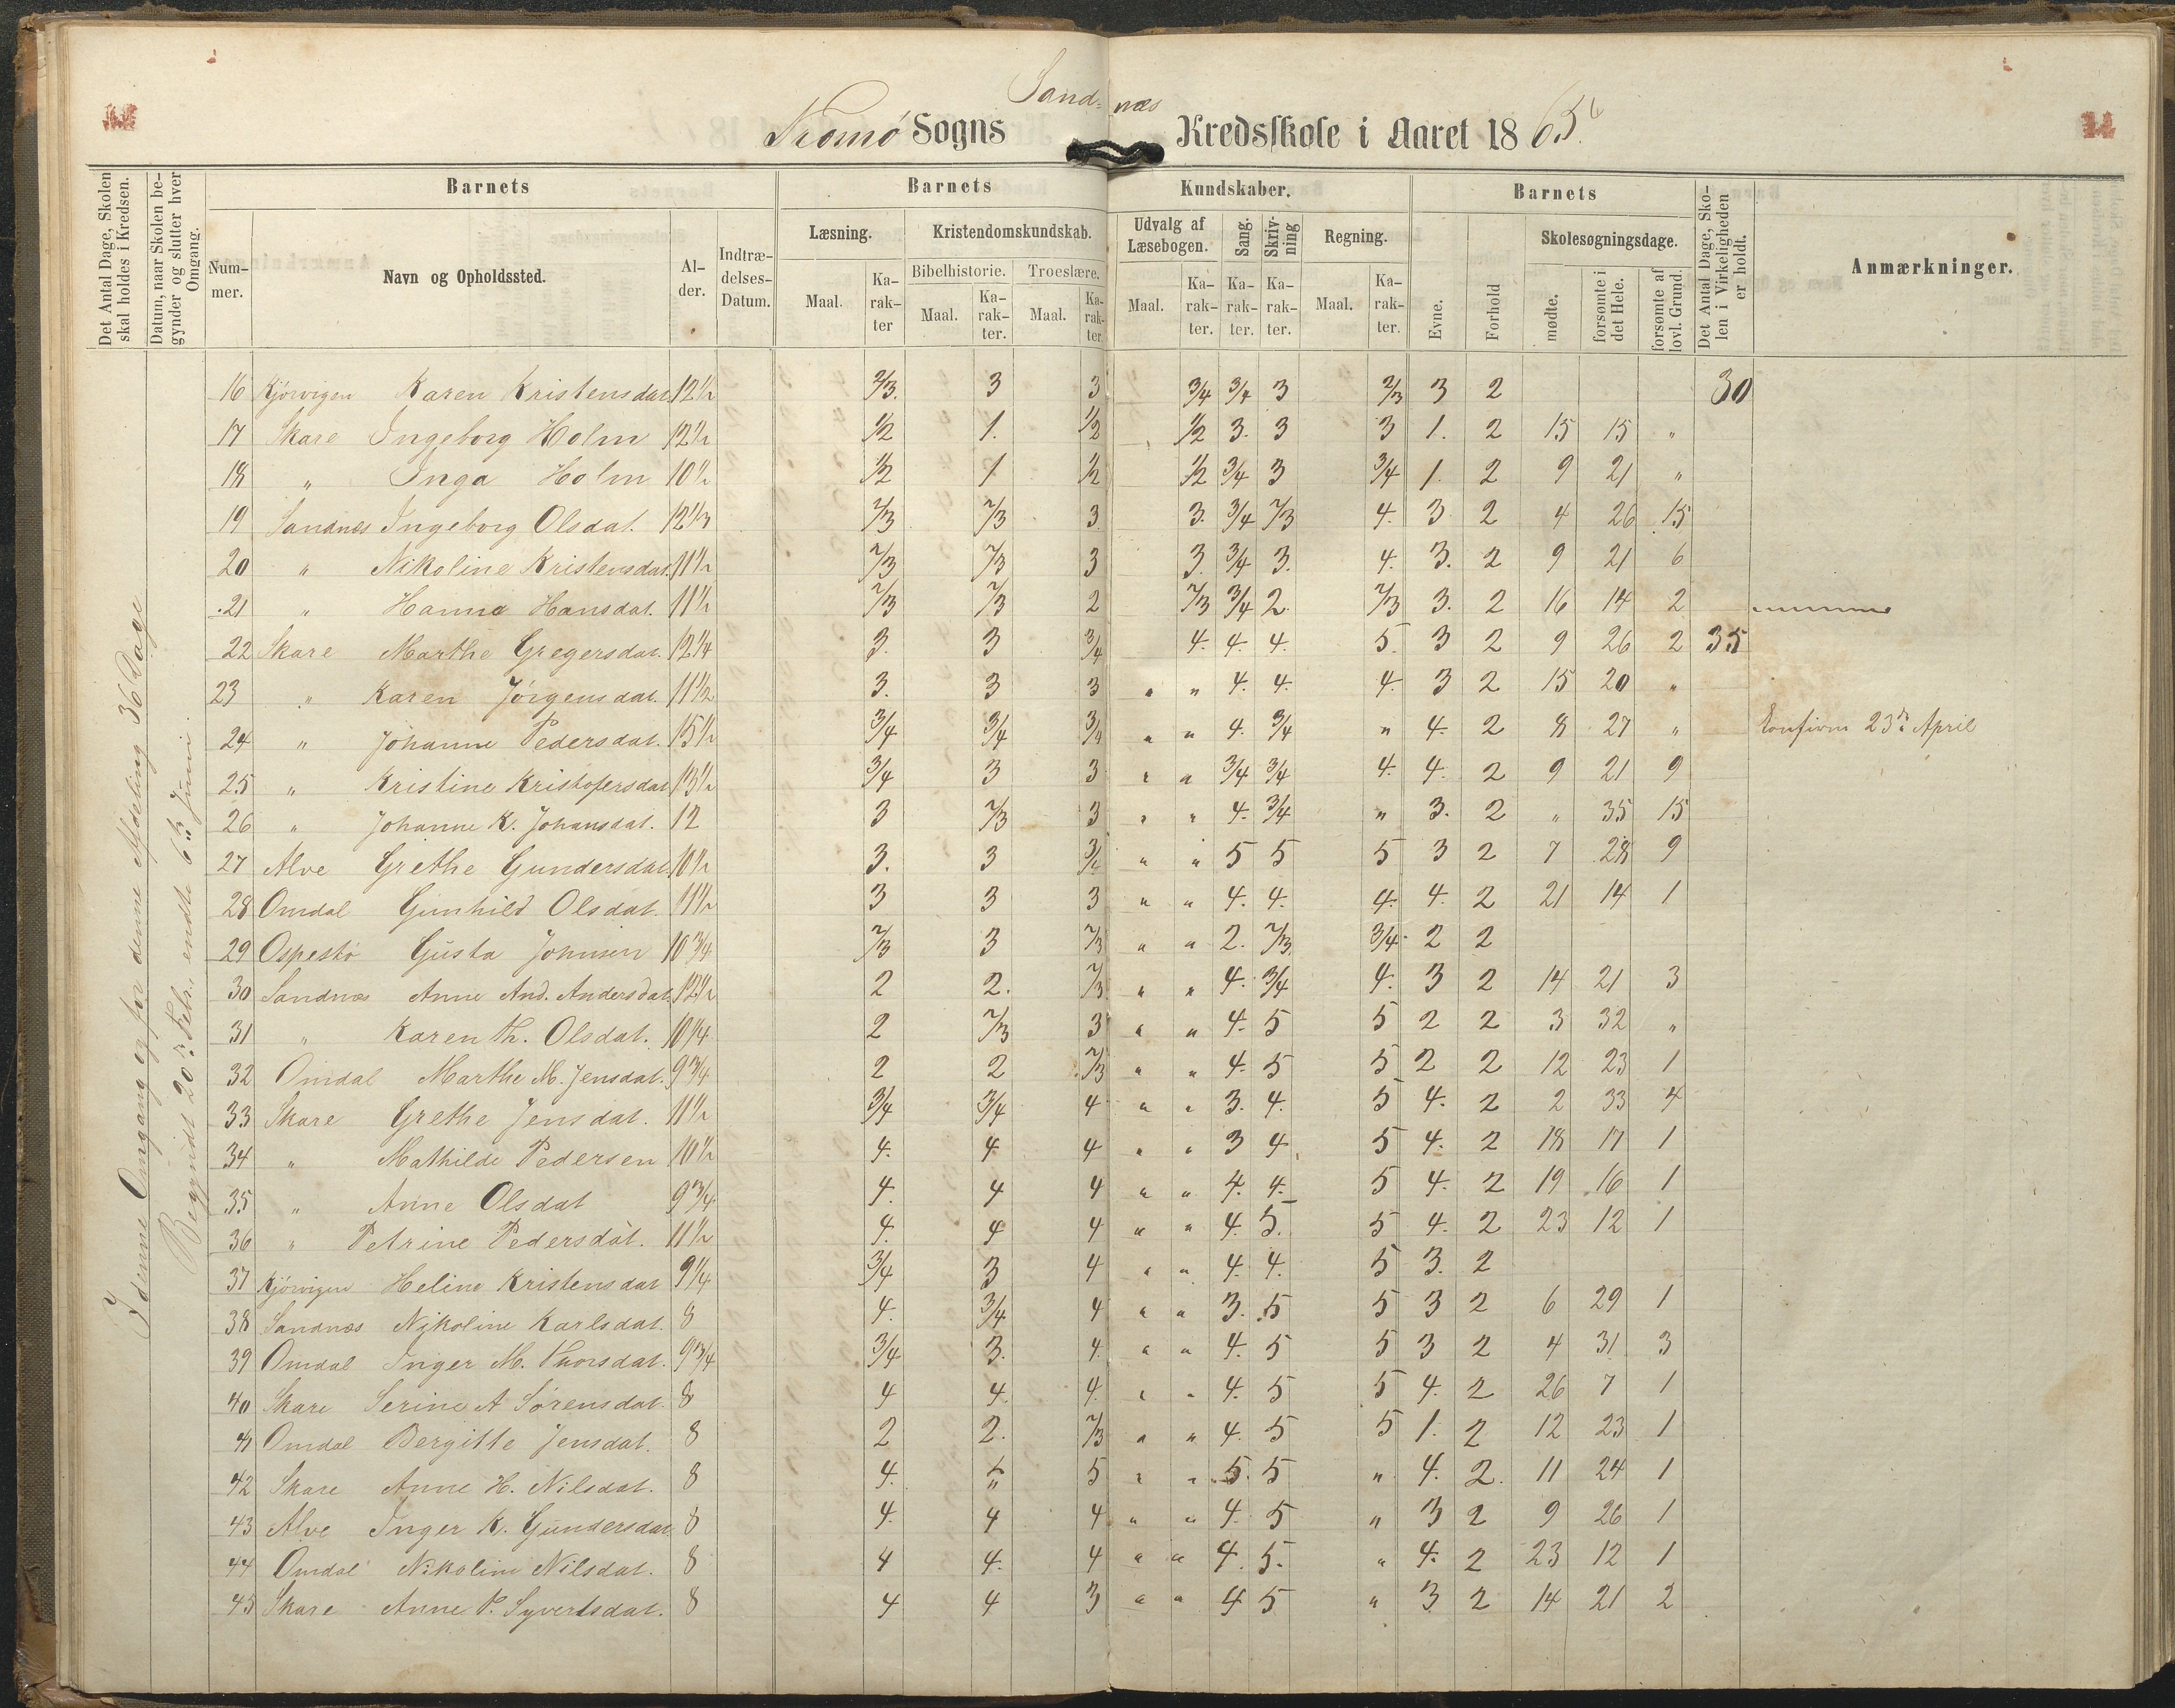 Sand= næs
Tromø Sogns Kredsskole i Aaret 1865.
Det Antal Dage, Skolen skal holdes i Kredsen.
Datum, naar Skolen begynder og slutter hver Omgang.
Barnets Barnets Kundskaber. Barnets
Det Antal Dage, Skolen i Virkeligheden er holdt.
Anmærkninger.
Nummer. Navn og Opholdssted. Alder. Indtrædelses-Datum.
Læsning. Kristendomskundskab. Udvalg af Læsebogen. Sang. Skrivning Regning. Evne. Forhold Skolesøgningsdage.
Bibelhistorie. Troeslære.
Maal. Karakter Maal. Karakter. Maal. Karakter. Maal. Karakter. Karakter. Karakter. Maal. Karakter. mødte. forsømte i det Hele. forsømte af lovl. Grund.
I denne Omgang og for denne Afdeling 36 Dage
Begyndt 20de Febr., endte 6te Juni.
16 Kjørvigen Karen Kristensdat. 12½ 2/3. 3 3 3/4 3/4 3 2/3 3 2 30
17 Skare Ingeborg Holm 12½ ½ 1. ½ ½ 3. 3 3 1. 2 15 15 "
18 " Inga Holm 10½ ½ 1 ½ ½ 3/4 3 3/4 1. 2 9 21 "
19 Sandnæs Ingeborg Olsdat. 12 1/3 2/3 2/3 3. 3. 3/4 2/3 4. 3. 2 4 26 15
20 " Nikoline Kristensdat. 11½ 2/3 2/3 3 3. 3/4 3. 4. 3. 2 9 21 6
21 " Hanna Hansdat. 11½ 2/3 2/3 2 2/3 3/4 2. 2/3 3. 2 16 14 2
22 Skare Marthe Gregersdat. 12¼ 3. 3 3/4 4. 4. 4. 5. 3 2 9 26 2 35
23 " Karen Jörgensdat. 11½ 3. 3 3 " " 4. 4. 4. 3 2 15 20 "
24 " Johanne Pedersdat. 15½ 3/4 3/4 3/4 " " 4. 3/4 " 4. 2 8 27 " Konfirm 23de April
25 " Kristine Kristofersdat 13½ 3/4 3 3 " " 3/4 3/4 4. 4. 2 9 21 9
26 " Johanne K. Johansdat. 12 3 2/3 3 " " 4. 3/4 " 3. 2 " 35 15
27 Alve Grethe Gundersdat. 10½ 3. 3 3/4 " " 5 5 5 3 2 7 28 9
28 Omdal Gunhild Olsdat. 11½ 3 3 3 " " 4. 4. 4. 4. 2 21 14 1
29 Ospestø Gusta Johnsen 10¾ 2/3 3 2/3 " " 2. 2/3. 3/4. 2 2
30 Sandnæs Anne And. Andersdat. 12½ 2 2. 2/3 " " 4. 3/4 4. 3 2 14 21 3
31 " Karen Th. Olsdat. 10¼ 2 2/3 3 " " 4. 5 5 2 2 3 32 "
32 Omdal Marthe M. Jensdat. 9¾ 2 2 2/3 " " 4. 5 5 2 2 12 23 1
33 Skare Grethe Jensdat. 11½ 3/4 3/4 4 " " 3. 4. 5 4. 2 2 33 4
34 " Mathilde Pedersen 10½ 4. 4 4 " " 3 4 5 4. 2 18 17 1
35 " Anne Olsdat 9¾ 4. 4 4 " " 4. 4. 5 4. 2 19 16 1
36 " Petrine Pedersdat. 11½ 4. 4 4 " " 4. 5. 5 4. 2 23 12 1
37 Kjørvigen Heline Kristensdat 9¼ 3/4 3 4 " " 4. 4. 5 3. 2
38 Sandnæs Nikoline Karlsdat. 8 4. 3/4 4 " " 3. 5 5 3 2 6 29 1
39 Omdal Inger M. Thorsdat. 9¾ 3/4 3. 4. " " 4. 5 5 3 2 4 31 3
40 Skare Serine A Sørensdat. 8 4 4. 4. " " 4. 5 5 4. 2 26 7 1
41 Omdal Bergitte Jensdat. 8 2 2. 2/3 " " 4. 5 5 1. 2 12 23 1
42 Skare Anne H. Nilsdat. 8 4. 5 " " 5. 5 " 4. 2. 11 24 1
43 Alve Inger K. Gundersdat. 8 4. 4 4 " " 4. 5 " 3 2 9 26 1
44 Omdal Nikoline Nilsdat. 8 4 4. 4 " " 4. 5. " 4. 2 23 12 1
45 Skare Anne P. Syvertsdat. 8 4 4 3 " " 4 5 " 3 2 14 21 2